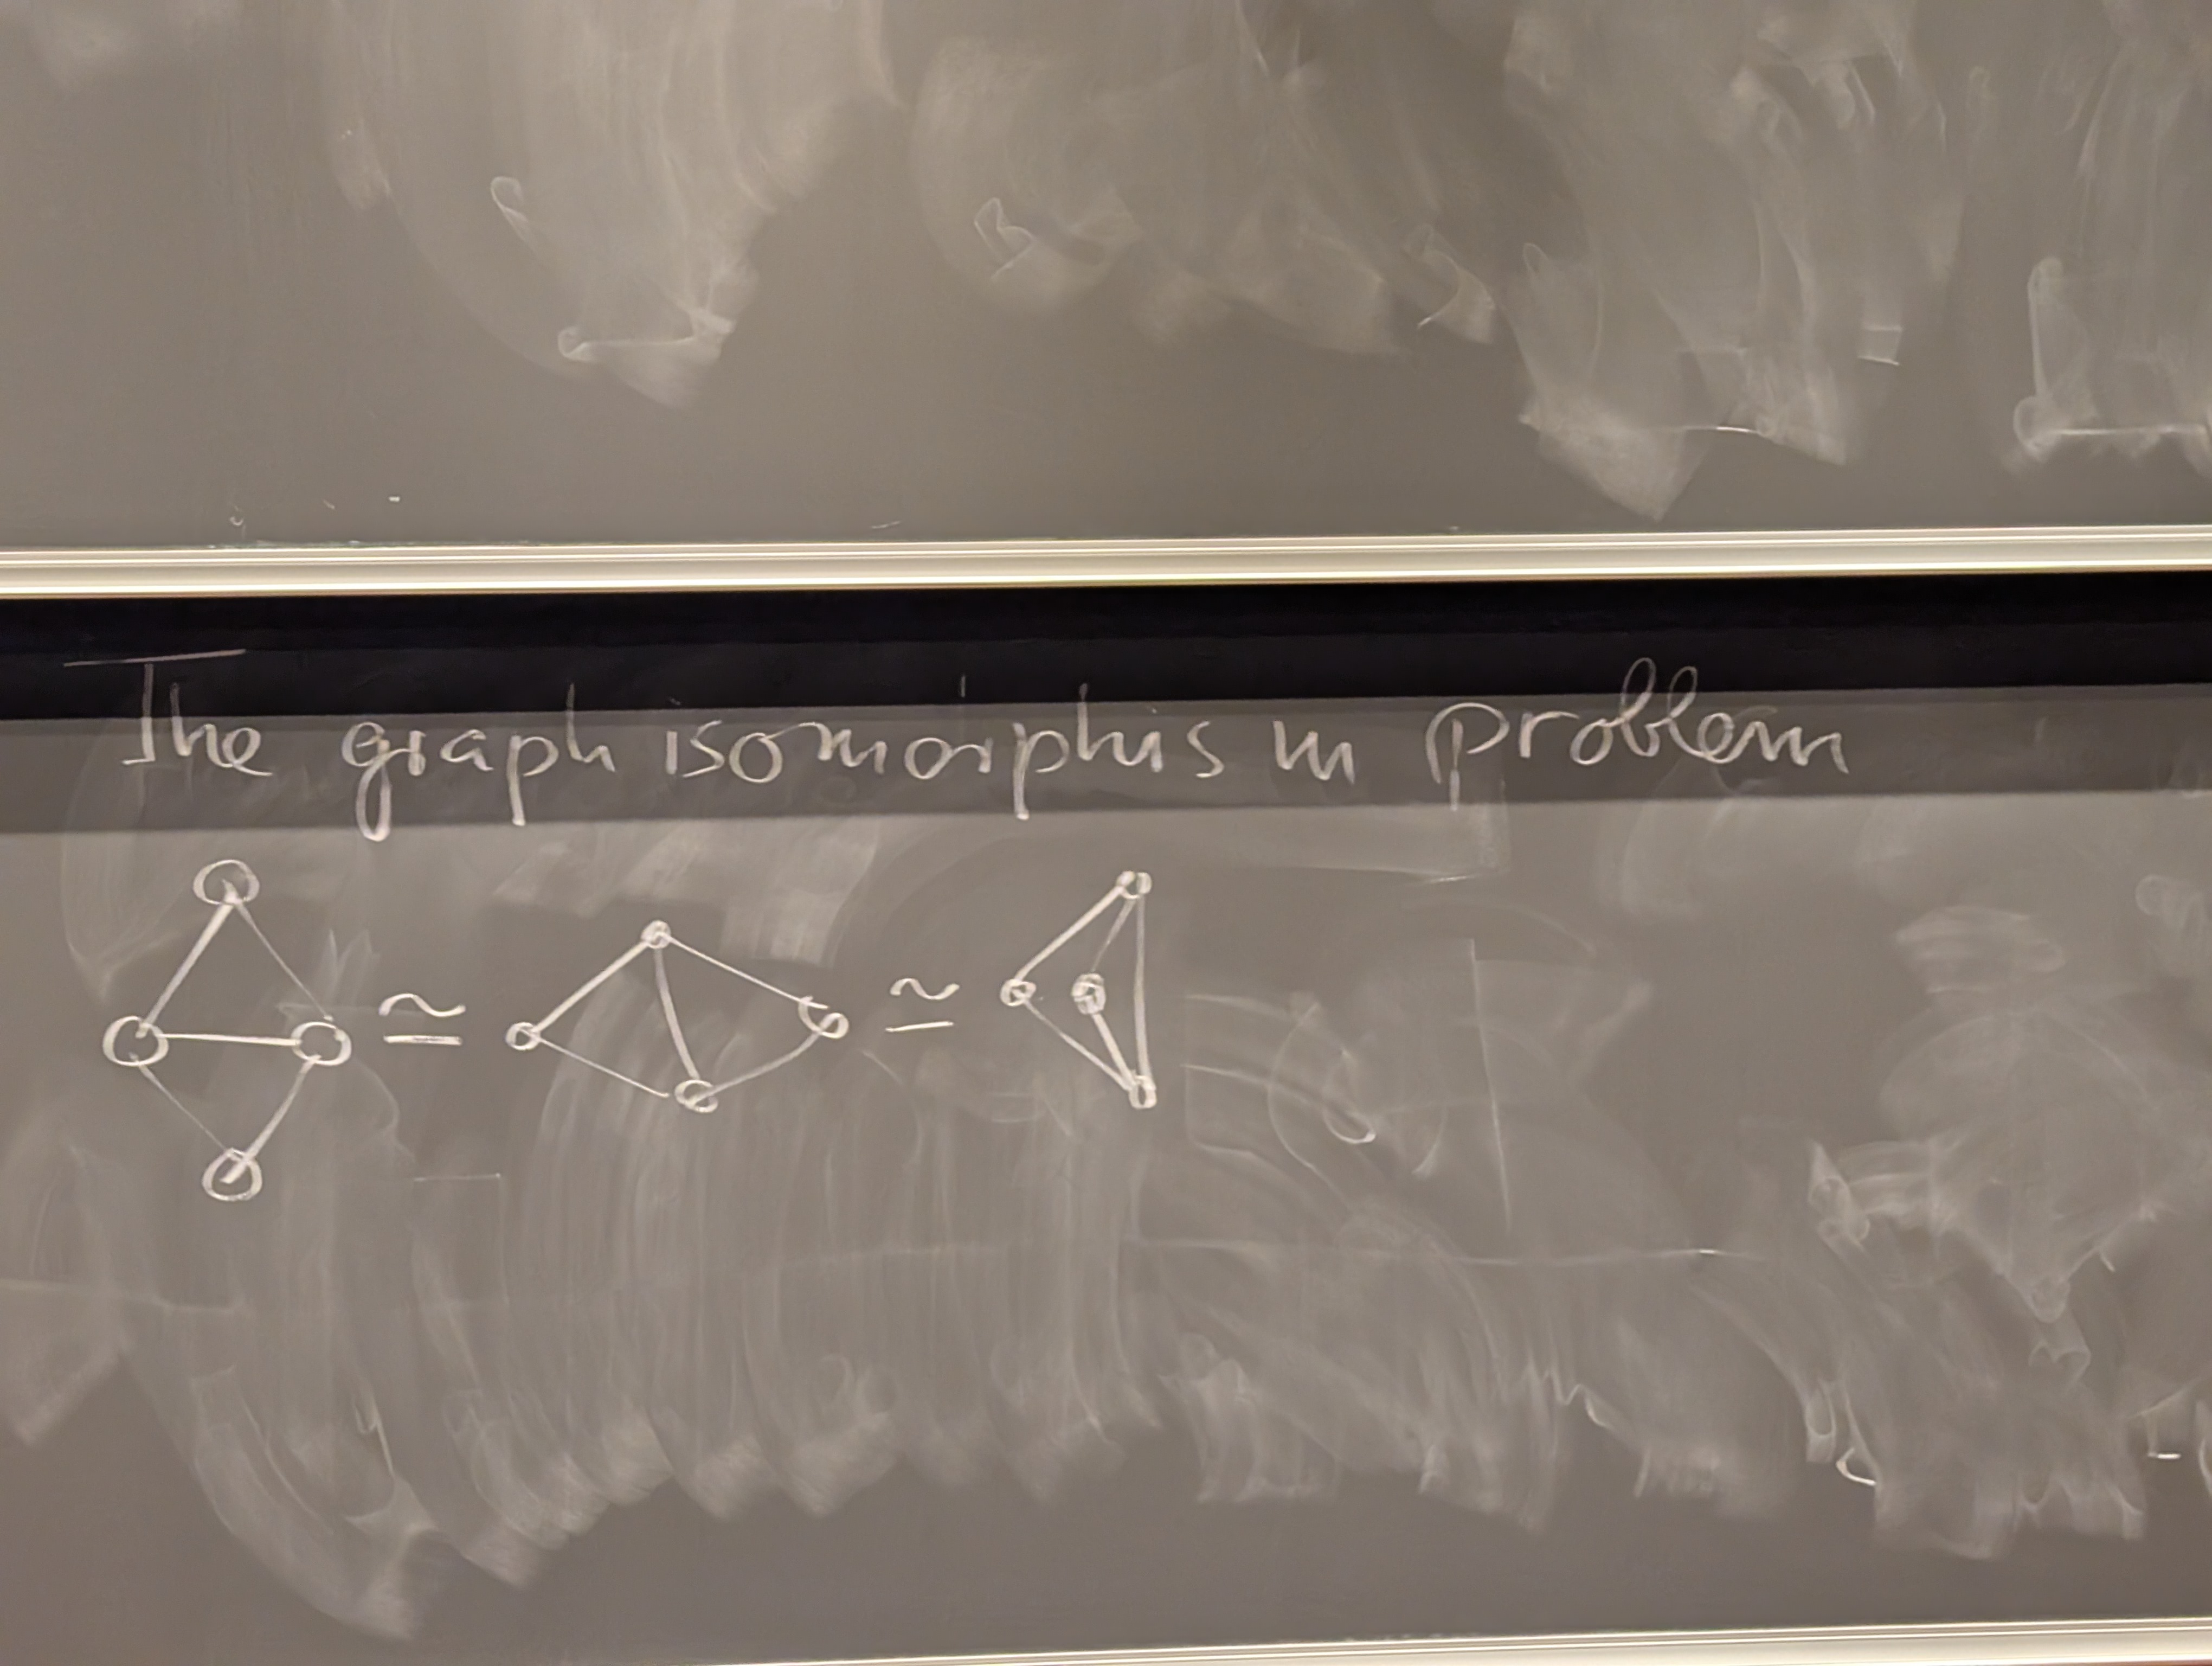 The graph isomorphism problem
≃ ≃